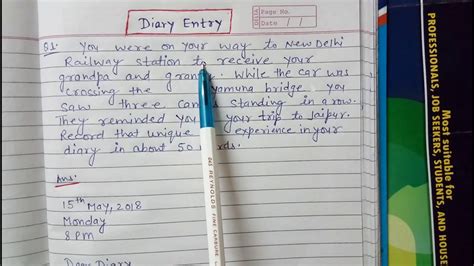 Diary Entry
Page No.
Date / /
Q1. You were on your way to New Delhi
Railway station to receive your
grandpa and granny. While the car was
crossing the yamuna bridge you
saw three camels standing in a row.
They reminded you your trip to Jaipur.
Record that unique experience in your
diary in about 50 words.
Ans:
15th May, 2018
Monday
8 pm
Dear Diary
REYNOLDS FINE CARBURE
Most suitable for
PROFESSIONALS, JOB
SEEKERS, STUDENTS, AND HOUSE